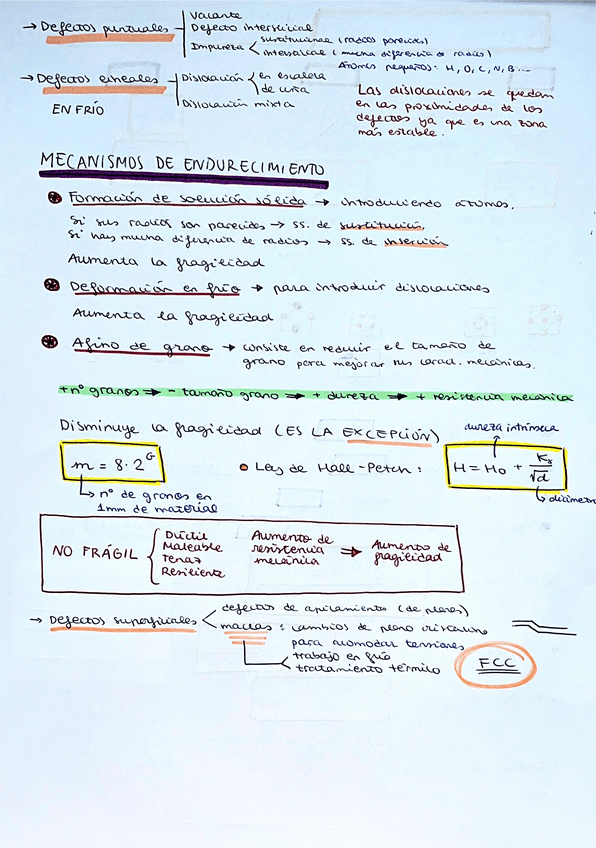 → Defectos puntuales
Vacante
Defecto intersticial
Impureza
sustitucional (radios parecidos)
intersticial (mucha diferencia de radios)
Átomos pequeños: H, O, C, N, B...
→ Defectos lineales
EN FRÍO
Dislocación
en escalera
de cuña
Dislocación mixta
Las dislocaciones se quedan
en las proximidades de los
defectos ya que es una zona
más estable.
MECANISMOS DE ENDURECIMIENTO
Formación de solución sólida → introduciendo átomos.
Si sus radios son parecidos → ss. de sustitución
Si hay mucha diferencia de radios → ss. de inserción
Aumenta la fragilidad
Deformación en frío → para introducir dislocaciones
Aumenta la fragilidad
Afino de grano → consiste en reducir el tamaño de
grano para mejorar sus carac. mecánicas.
+ nº granos → - tamaño grano → + dureza → + resistencia mecánica
Disminuye la fragilidad (ES LA EXCEPCIÓN)
dureza intrínseca
m = 8·2^G
• Ley de Hall-Petch:
H = Ho + K/√d
nº de granos en
1mm de material
diámetro
NO FRÁGIL
Dúctil
Maleable
Tenaz
Resiliente
Aumento de
resistencia
mecánica
→
Aumento de
fragilidad
→ Defectos superficiales
defectos de apilamiento (de planos)
maclas: cambios de plano cristalino
para acomodar tensiones
trabajo en frío
tratamiento térmico
FCC